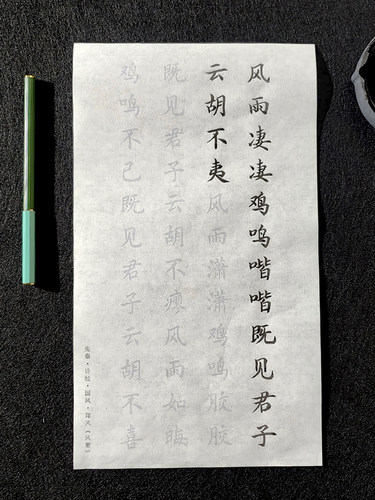 风雨凄凄鸡鸣喈喈既见君子
云胡不夷风雨潇潇鸡鸣胶胶
既见君子云胡不瘳风雨如晦
鸡鸣不已既见君子云胡不喜
先秦·诗经·国风·郑风《风雨》